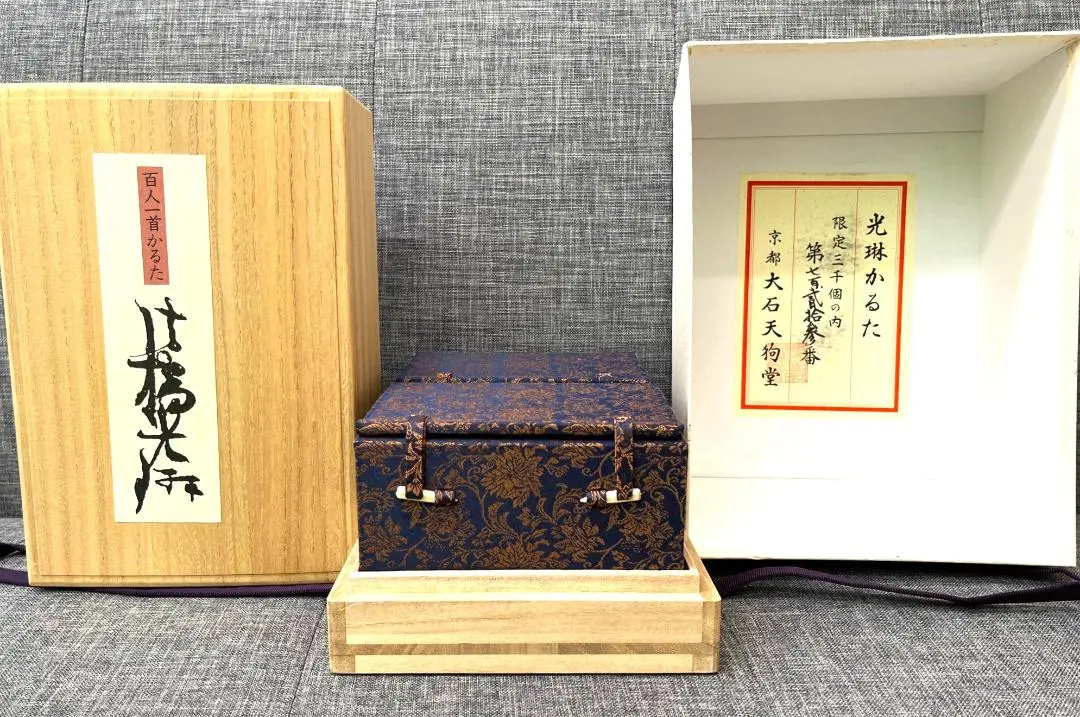 百人一首かるた
法橋光琳
光琳かるた
限定三千個の内
第七百貳拾参番
京都 大石天狗堂